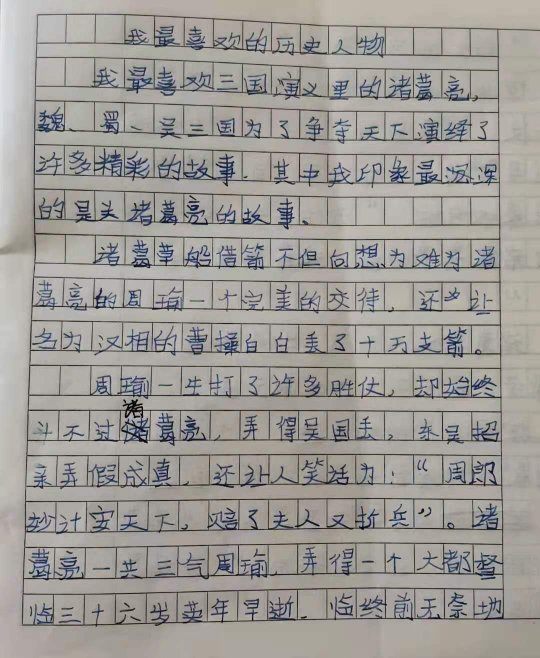 我最喜欢的历史人物
我最喜欢三国演义里的诸葛亮,
魏、蜀、吴三国为了争夺天下演绎了
许多精彩的故事.其中我印象最深深
的是关诸葛亮的故事、
诸葛草船借箭不但向想为难为诸
葛亮的周瑜一个完美的交待,还让
名为汉相的曹操白白丢了十万支箭。
周瑜一生打了许多胜仗,却始终
斗不过诸葛亮,弄得吴国丢,东吴招
亲弄假成真,还让人笑话为:“周郎
妙计安天下,赔了夫人又折兵”。诸
葛亮一共三气周瑜,弄得一个大都督
临三十六岁英年早逝.临终前无奈地